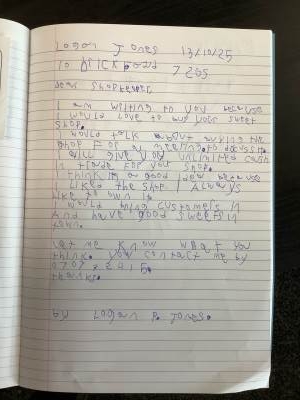 Logan Jones 13/10/25
10 Brick road 7265
Dear Shopkeeper
I am writing to you because
I would love to buy your sweet
Shop.
I would talk about buying the
shop for a meeting to discuss.
I will give you unlimited cash
I think is a good idea because
I liked the shop I Always
like to own it.
I would bring customers in
And have good sweets in
town.
Let me know what you
think. you contact me by
thanks.
By Logan P. Jones.